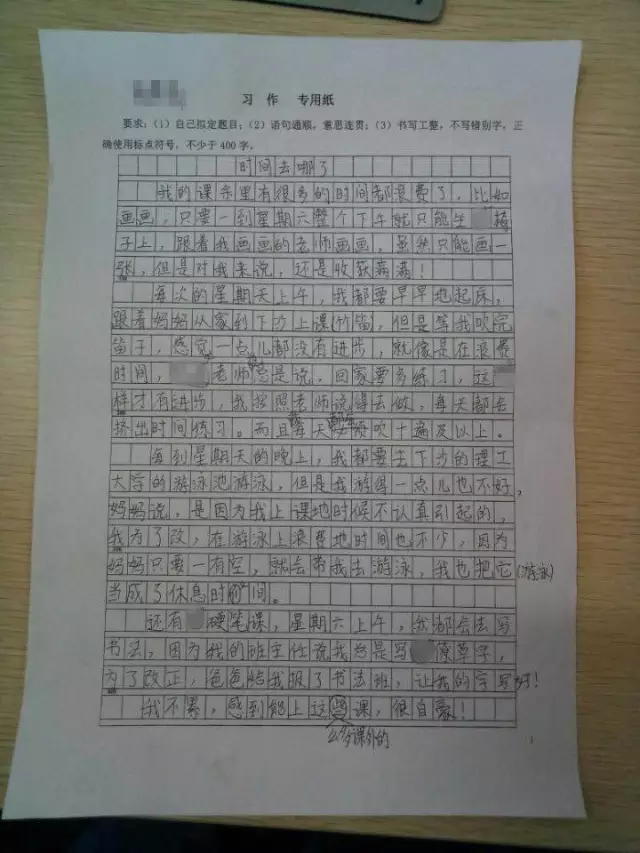 习 作 专用纸
要求:(1)自己拟定题目;(2)语句通顺,意思连贯;(3)书写工整,不写错别字,正
确使用标点符号,不少于400字。
时间去哪了
我的课余里有很多的时间都浪费了,比如
画画,只要一到星期六整个下午就只能坐椅
子上,跟着我画画的老师画画,虽然只能画一
张,但是对我来说,还是收获满满!
每次的星期天上午,我都要早早地起床,
跟着妈妈从家到下沙上课(竹笛,但是等我吹完
笛子,感觉一点儿都没有进步,就像是在浪费
时间,老师总是说,回家要多练习,这
样才有进步,我按照老师说得去做,每天都会
挤出时间练习。而且每天都要吹十遍及以上。
每到星期天的晚上,我都要去下沙的理工
大学的游泳池游泳,但是我游得一点儿也不好,
妈妈说,是因为我上课地时候不认真引起的,
我为了改,在游泳上浪费地时间也不少,因为
妈妈只要一有空,就会带我去游泳,我也把它(游泳)
当成了休息时间。
还有硬笔课,星期六上午,我都会去写
书法,因为我的班主任说我总是写潦草字,
为了改正,爸爸给我报了书法班,让我的字写好!
我不累,感到能上这些课,很自豪!
么多课外的